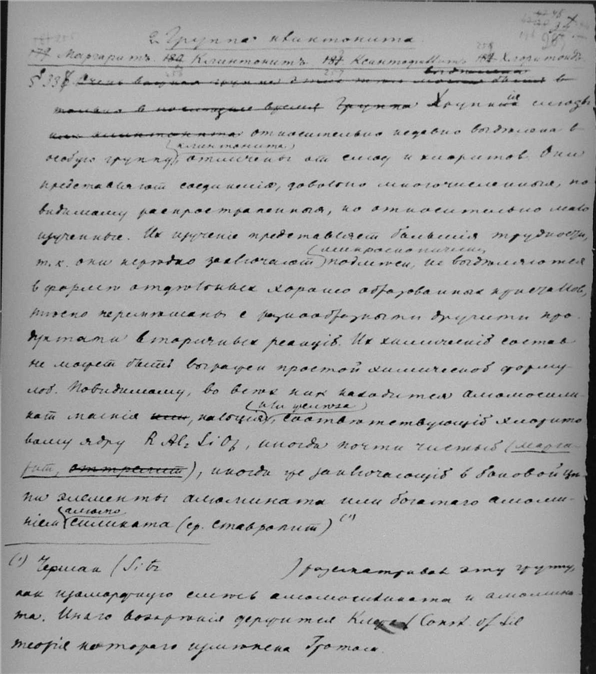 2. Группа клинтонита
Маргаритъ. Клинтонитъ. Ксантофиллитъ. Хлоритоидъ
§ 338 Хрупкія слюды
относительно недавно выдѣлена въ
особую группу клинтонита, отличены от слюд и хлоритов. Они
представляют соединенія, довольно многочисленныя, по
видимому распространенныя, но относительно мало
изученные. Их изученіе представляет большія трудности,
т. к. они нерѣдко заключают микроскопическ. подмѣси, не выдѣляются
в формѣ отдѣльных хорошо образованных кристаллов,
тѣсно перемѣшаны с разнообразными другими про-
дуктами вторичных реакцій. Их химическій состав
не может быть выражен простой химической форму-
лой. Повидимому, во всѣх них находится алюмосили-
кат магнія, кальція или желѣза, соотвѣтствующій хлорито-
вому ядру R Al₂ SiO₆, иногда почти чистый (марга-
рит, оттрелит), иногда же заключающій в боковой цѣ-
пи элементы алюмината или богатаго алюми-
ніем алюмосиликата (ср. ставролит) (¹)
(¹) Чермак (Sitz ) разсматривал эту группу,
как изоморфную смѣсь алюмосиликата и алюмина-
та. Инаго воззрѣнія держится Const. of Sil
теорія котораго измѣнена Гротом.